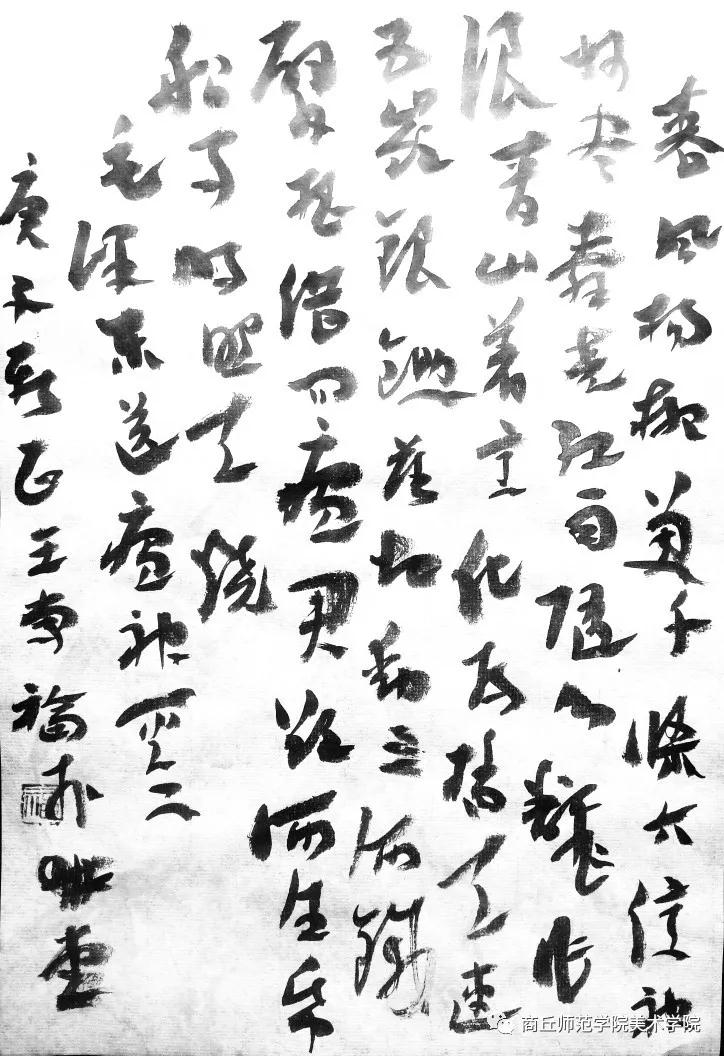 春风杨柳萬千條六億神
州尽舜尧红雨随心翻作
浪青山着意化为桥天连
五岭银锄落地动三河铁
臂摇借问瘟君欲何往纸
船明照天烧
毛泽东送瘟神其二
庚子新正王福於堂
商丘师范学院美术学院